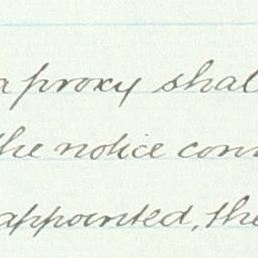 a proxy shal
the notice con
appointed, the